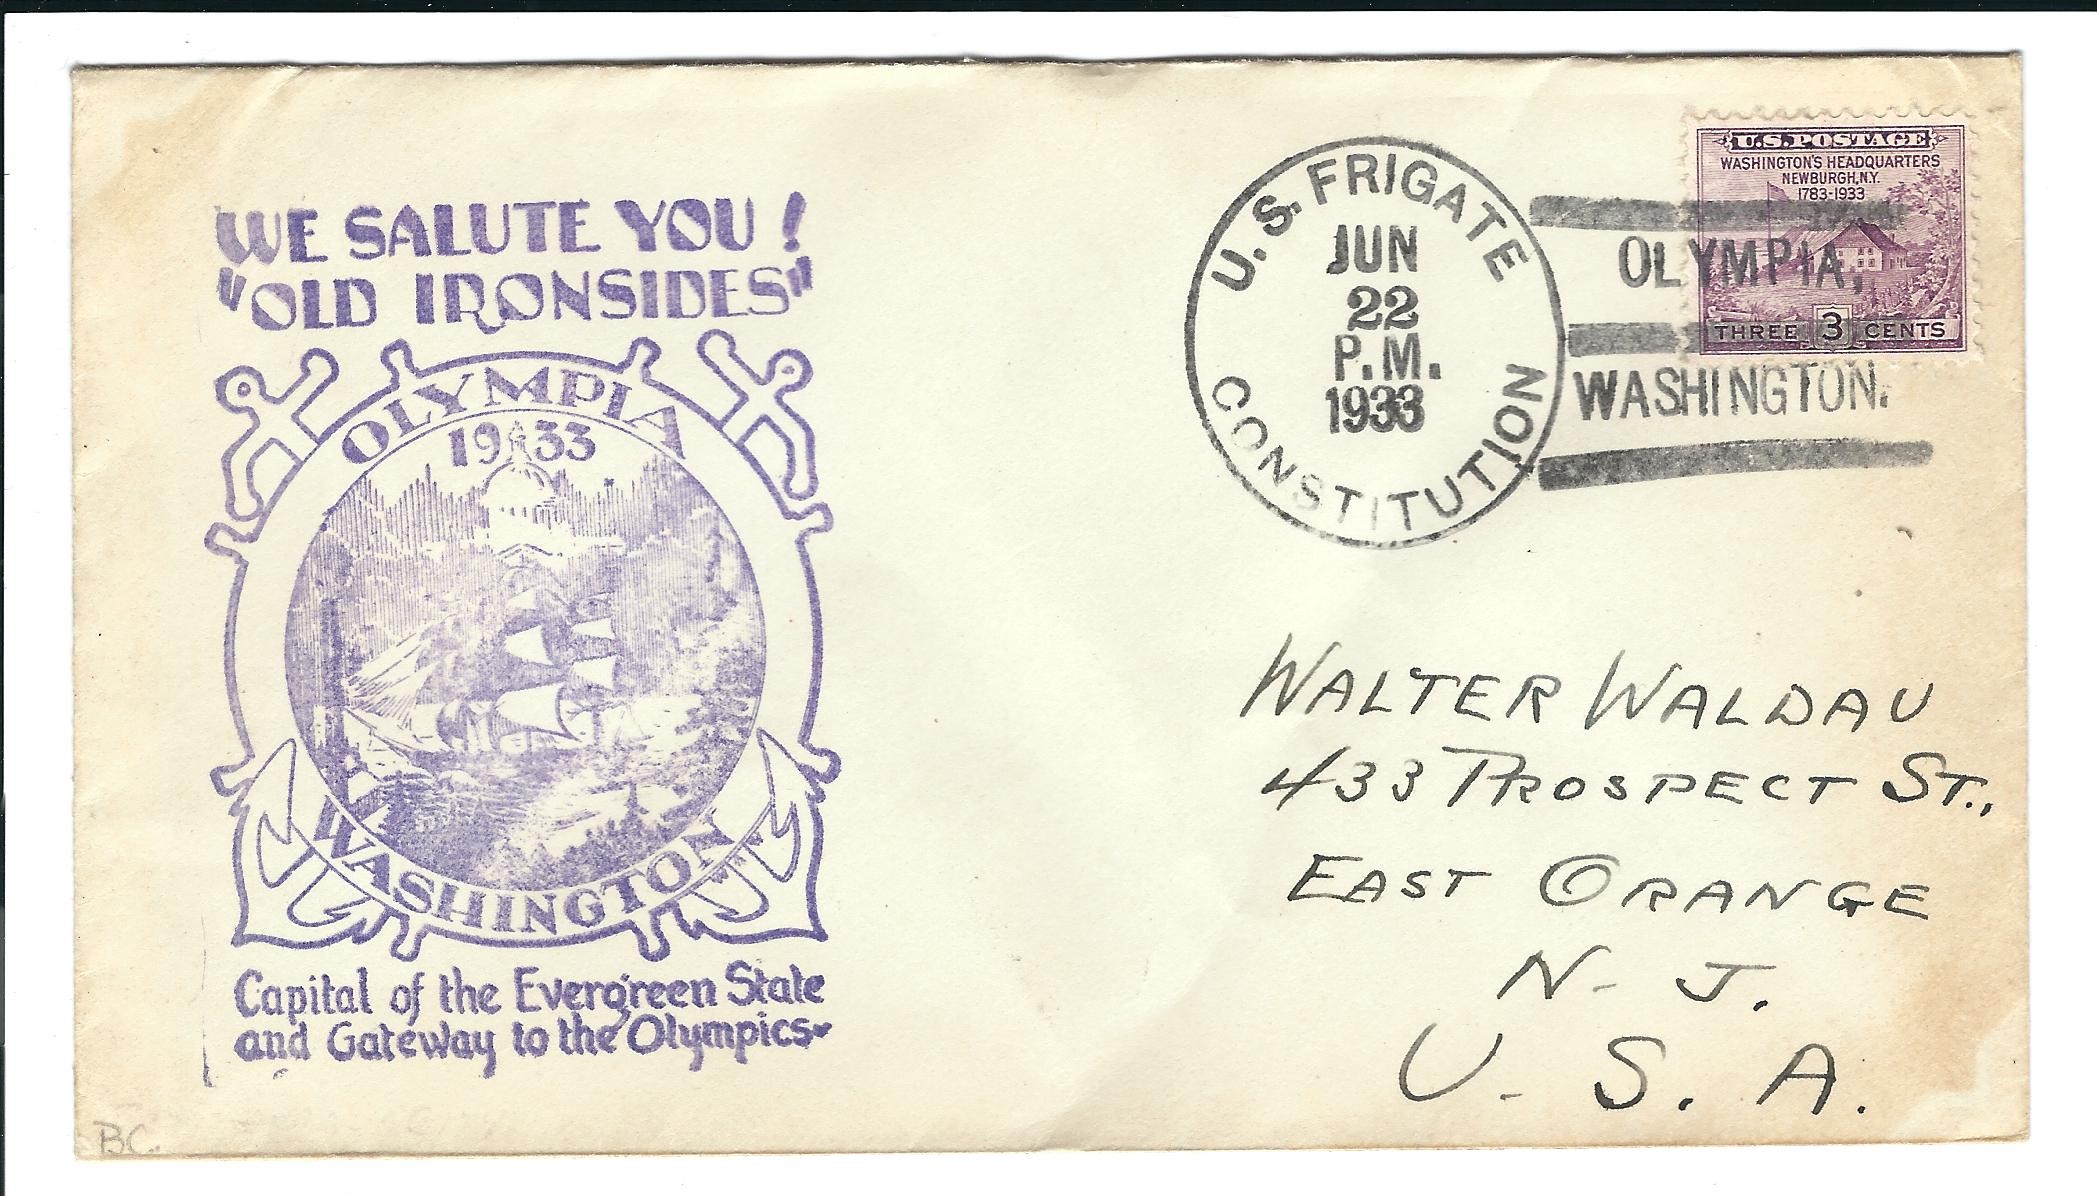 WE SALUTE YOU!
"OLD IRONSIDES"
OLYMPIA
1933
WASHINGTON
Capital of the Evergreen State
and Gateway to the Olympics
BC.
U.S. FRIGATE
JUN
22
P.M.
1933
CONSTITUTION
OLYMPIA,
WASHINGTON.
U.S. POSTAGE
WASHINGTON'S HEADQUARTERS
NEWBURGH, N.Y.
1783-1933
THREE 3 CENTS
WALTER WALDAU
433 PROSPECT ST.,
EAST ORANGE
N. J.
U. S. A.